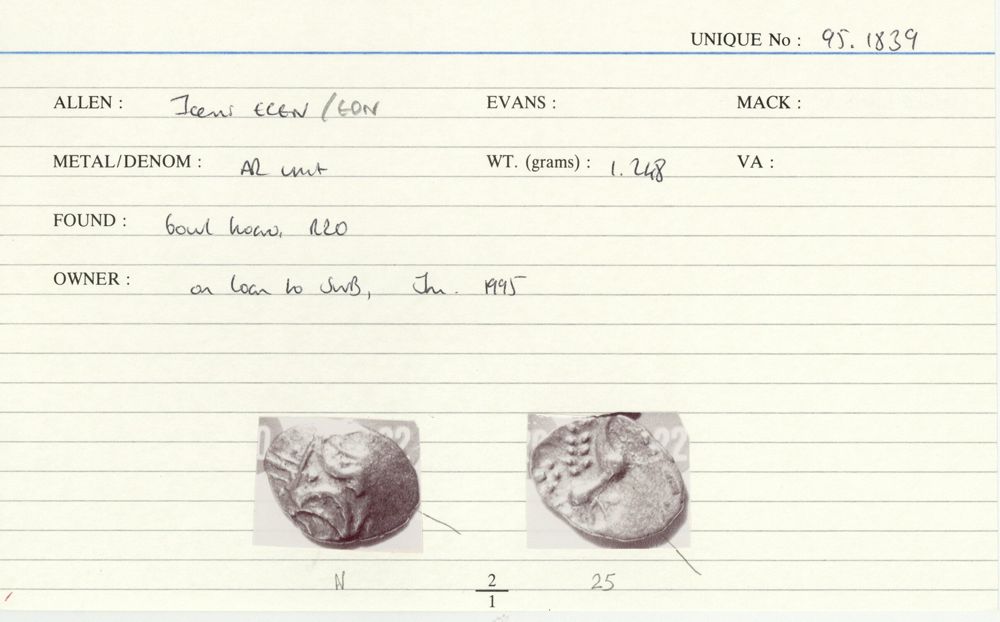 UNIQUE No : 95. 1839
ALLEN : Iceni ECEN / EDN EVANS : MACK :
METAL/DENOM : AR unit WT. (grams) : 1.248 VA :
FOUND : bowl hoard, R20
OWNER : on loan to SWB, Jan. 1995
22 22
N 2/1 25